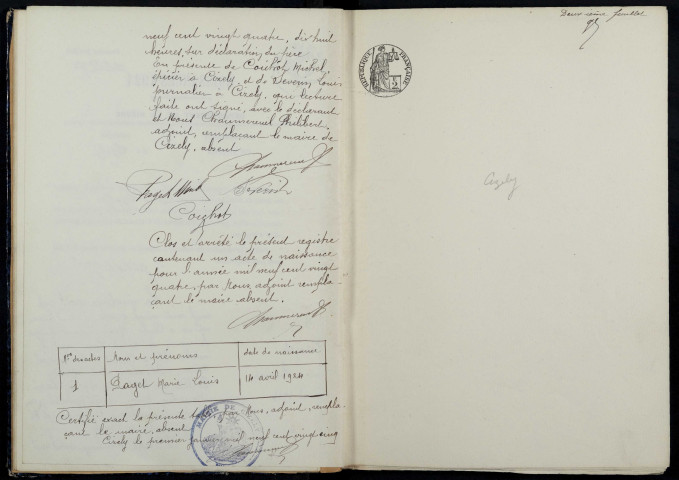 neuf cent vingt quatre, dix huit
heures, sur déclaration du père
En présence de Coizhot Michel
épicier à Cizely, et de Devenin Louis
journalier à Cizely, qui lecture
faite ont signé, avec le déclarant
et Nous Chaumereuil Philibert,
adjoint, remplaçant le maire de
Cizely, absent
Coizhot
Clos et arrêté le présent registre
contenant un acte de naissance
pour l'année mil neuf cent vingt
quatre, par Nous, adjoint rempla-
çant le maire absent.
Nos des actes Noms et prénoms date de naissance
1 Paget Marie Louis 14 avril 1924
Certifié exact la présente par Nous, adjoint, rempla-
çant le maire, absent
Cizely le premier janvier mil neuf cent vingt cinq
MAIRIE DE
Deuxième feuillet
RÉPUBLIQUE FRANÇAISE
2
Cizely